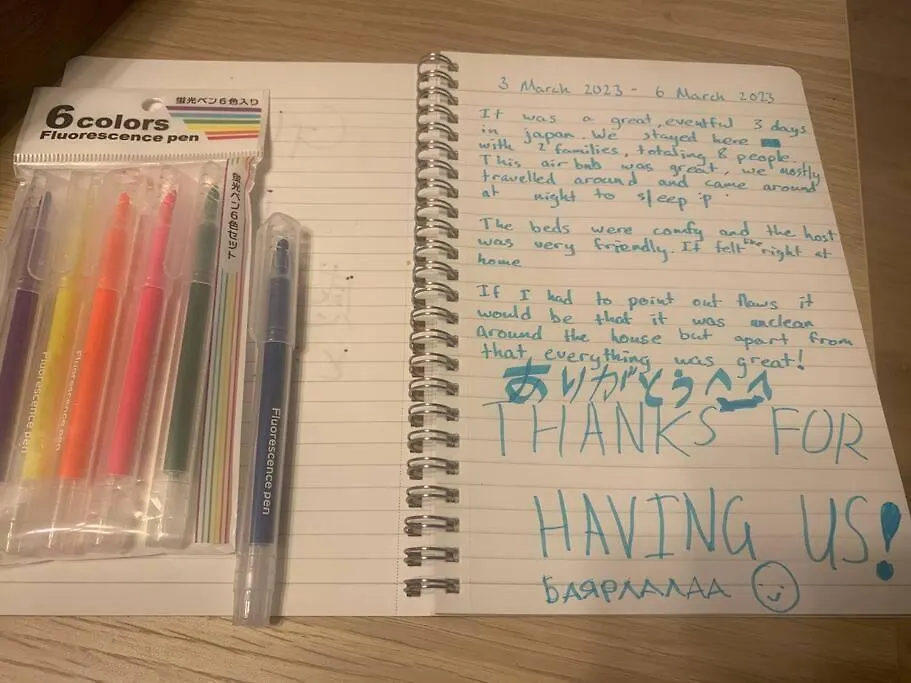 蛍光ペン6色入り
6 colors
Fluorescence pen
蛍光ペン6色セット
Fluorescence pen
Fluorescence pen
Fluorescence pen
3 March 2023 - 6 March 2023
It was a great, eventful 3 days
in japan. We stayed here
with 2 families, totaling 8 people.
This air bnb was great, we mostly
travelled around and came around
at night to sleep :p
The beds were comfy and the host
was very friendly. It felt the right at
home
If I had to point out flaws it
would be that it was unclean
Around the house but apart from
that everything was great!
ありがとうへ_へ
THANKS FOR
HAVING US!
БАЯРЛАЛАА